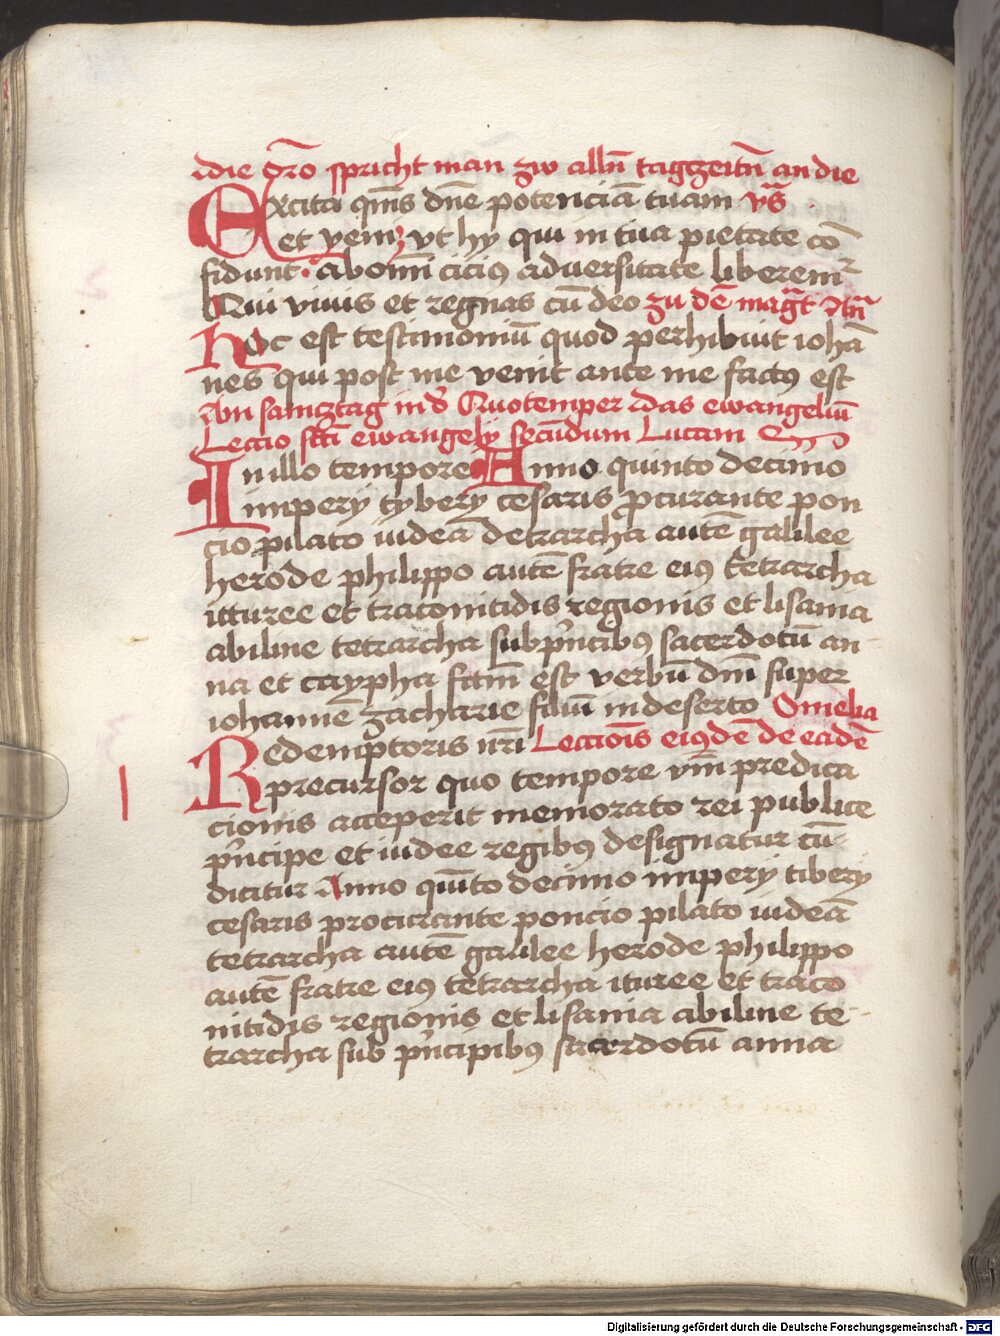 die oro spricht man zw alln tagzeitn an die
Excita qms dne potencia tuam vs
et veni vt hy qui in tua pietate co
fidunt ab omi cicius aduersitate liberem
Qui viuis et regnas cu deo zu de magt An
Hoc est testimoniu quod perhibuit ioha
nes qui post me venit ante me factus est
An samztag in d Quotemper das ewangeliu
Leccio sti ewangely secundum Lucam
In illo tempore Anno quinto decimo
impery tybery cesaris pcurante pon
cio pilato iudea detrarcha aute galilee
herode philippo aute fratre eius tetrarcha
itturee et traconitidis regionis et lisania
abiline tetrarcha sub pncibus sacerdotu an-
na et caypha fcm est verbu dni super
iohanne zacharie filiu in deserto Omelia
Redemptoris nri Leccionis eiusde de eade
precursor quo tempore vm predica
cionis acceperit memorato rei publice
pncipe et iudee regibus designatur cu-
dicitur Anno quito decimo impery tibery
cesaris procurante poncio pilato iudea
tetrarcha aute galilee herode philippo
aute fratre eius tetrarcha ituree et traco
nitidis regionis et lisania abiline te-
trarcha sub pncipibus sacerdotu anna
Digitalisierung gefördert durch die Deutsche Forschungsgemeinschaft - DFG